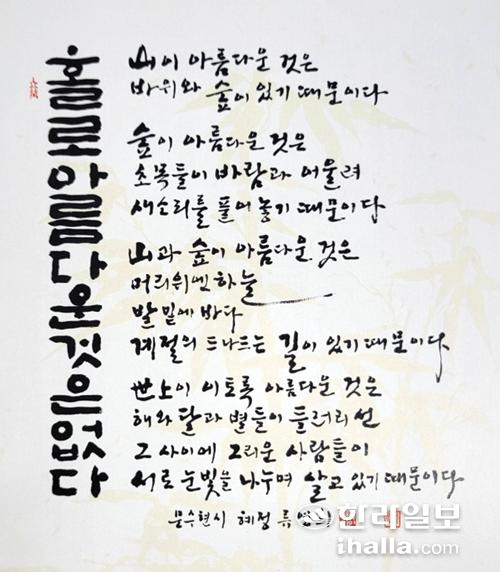 홀로아름다운것은없다
山이 아름다운 것은
바위와 숲이 있기 때문이다
숲이 아름다운 것은
초목들이 바람과 어울려
새소리를 풀어 놓기 때문이다
山과 숲이 아름다운 것은
머리위엔 하늘
발 밑에 바다
계절의 드나드는 길이 있기 때문이다
世上이 이토록 아름다운 것은
해와 달과 별들이 들러리 선
그 사이에 그리운 사람들이
서로 눈빛을 나누며 살고 있기 때문이다
문수현시 혜정
한라일보
ihalla.com